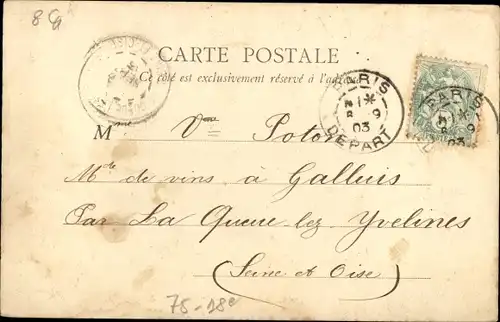 8 G
CARTE POSTALE
Ce côté est exclusivement réservé à l'adresse
PARIS
9
03
DEPART
PARIS
9
03
Mme Vve Poter
Mde de vins à Galluis
Par La Queue lez Yvelines
(Seine et Oise)
75-18e